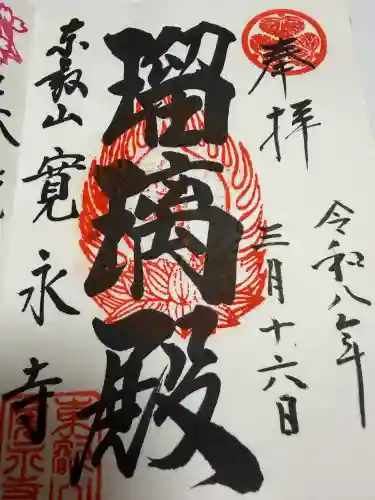 奉拝
令和八年
三月十六日
瑠璃殿
東叡山
寛永寺